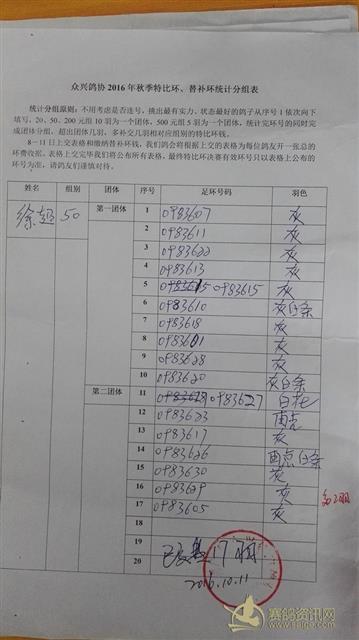 众兴鸽协 2016 年秋季特比环、替补环统计分组表
统计分组原则：不用考虑是否连号，挑出最有实力、状态最好的鸽子从序号 1 依次向下
填写，20、50、200 元组 10 羽为一个团体，500 元组 5 羽为一个团体，统计完环号的同时完
成团体分组，超出团体几羽，多补交几羽相对应组别的特比环钱。
8－11 日上交表格和缴纳替补环钱，我们鸽会将根据上交的表格为每位鸽友开一张总的
环费收据。表格上交完毕我们将公布所有表格，最终特比环决赛有效环号只以表格上公布的
环号为准，请鸽友们谨慎对待。
姓名 组别 团体 序号 足环号码 羽色
徐超 50 第一团体 1 0983607 灰
2 0983611 灰
3 0983622 灰
4 0983613 灰
5 0983615 0983615 灰
6 0983610 灰白条
7 0983618 灰
8 0983601 灰
9 0983628 灰
10 0983620 灰白条
第二团体 11 0983627 白花
12 0983623 雨点
13 0983617 灰
14 0983626 雨点白条
15 0983630 灰
16 0983629 灰
17 0983605 灰
18
19
20 17羽
2016.10.11
赛鸽资讯网